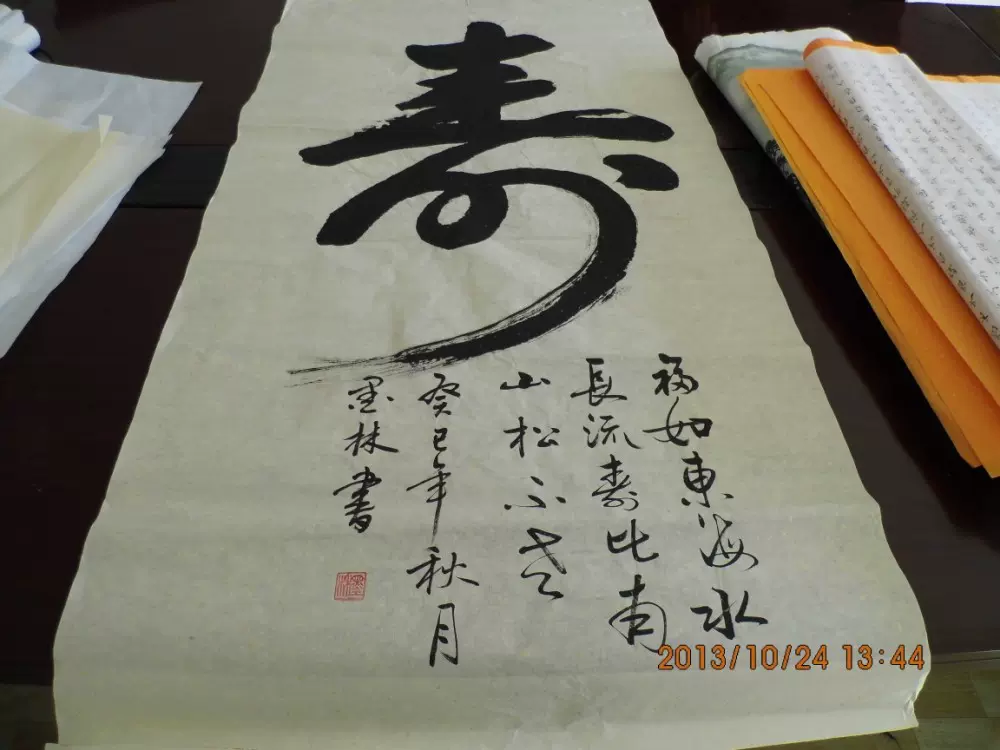 寿
福如東海水
長流壽比南
山松不老
癸巳年秋月
墨林書
2013/10/24 13:44